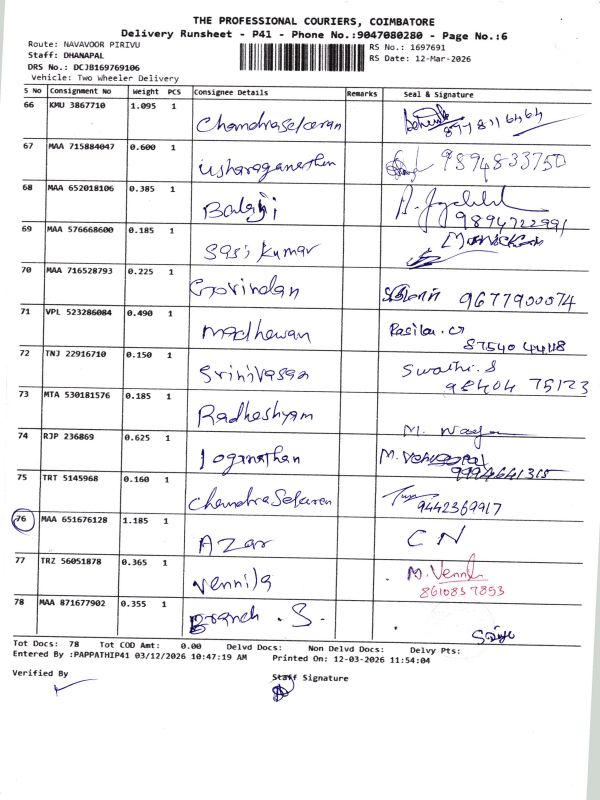 THE PROFESSIONAL COURIERS, COIMBATORE
Delivery Runsheet - P41 - Phone No.:9047080280 - Page No.:6
Route: NAVAVOOR PIRIVU RS No.: 1697691
Staff: DHANAPAL RS Date: 12-Mar-2026
DRS No.: DCJB169769106
Vehicle: Two Wheeler Delivery
S No Consignment No Weight PCS Consignee Details Remarks Seal & Signature
66 KMU 3867710 1.095 1 Chandrasekaran
67 MAA 715884047 0.600 1 Usharaganathan 9894833750
68 MAA 652018106 0.385 1 Balaji
9894722991
69 MAA 576668600 0.185 1 Sasi kumar
70 MAA 716528793 0.225 1 Govindan 9677900074
71 VPL 523286084 0.490 1 Madhewan
87540 44118
72 TNJ 22916710 0.150 1 Srinivasan Swathi.S
98404 75123
73 MTA 530181576 0.185 1 Radheshyam
74 RJP 236869 0.625 1 Loganathan
9994641315
75 TRT 5145968 0.160 1 Chandrasekaran
9442369917
76 MAA 651676128 1.185 1 Azar C N
77 TRZ 56051878 0.365 1 Vennila M. Vennila
8610837853
78 MAA 871677902 0.355 1 Branch . S.
Tot Docs: 78 Tot COD Amt: 0.00 Delvd Docs: Non Delvd Docs: Delvy Pts:
Entered By :PAPPATHIP41 03/12/2026 10:47:19 AM Printed On: 12-03-2026 11:54:04
Verified By Staff Signature